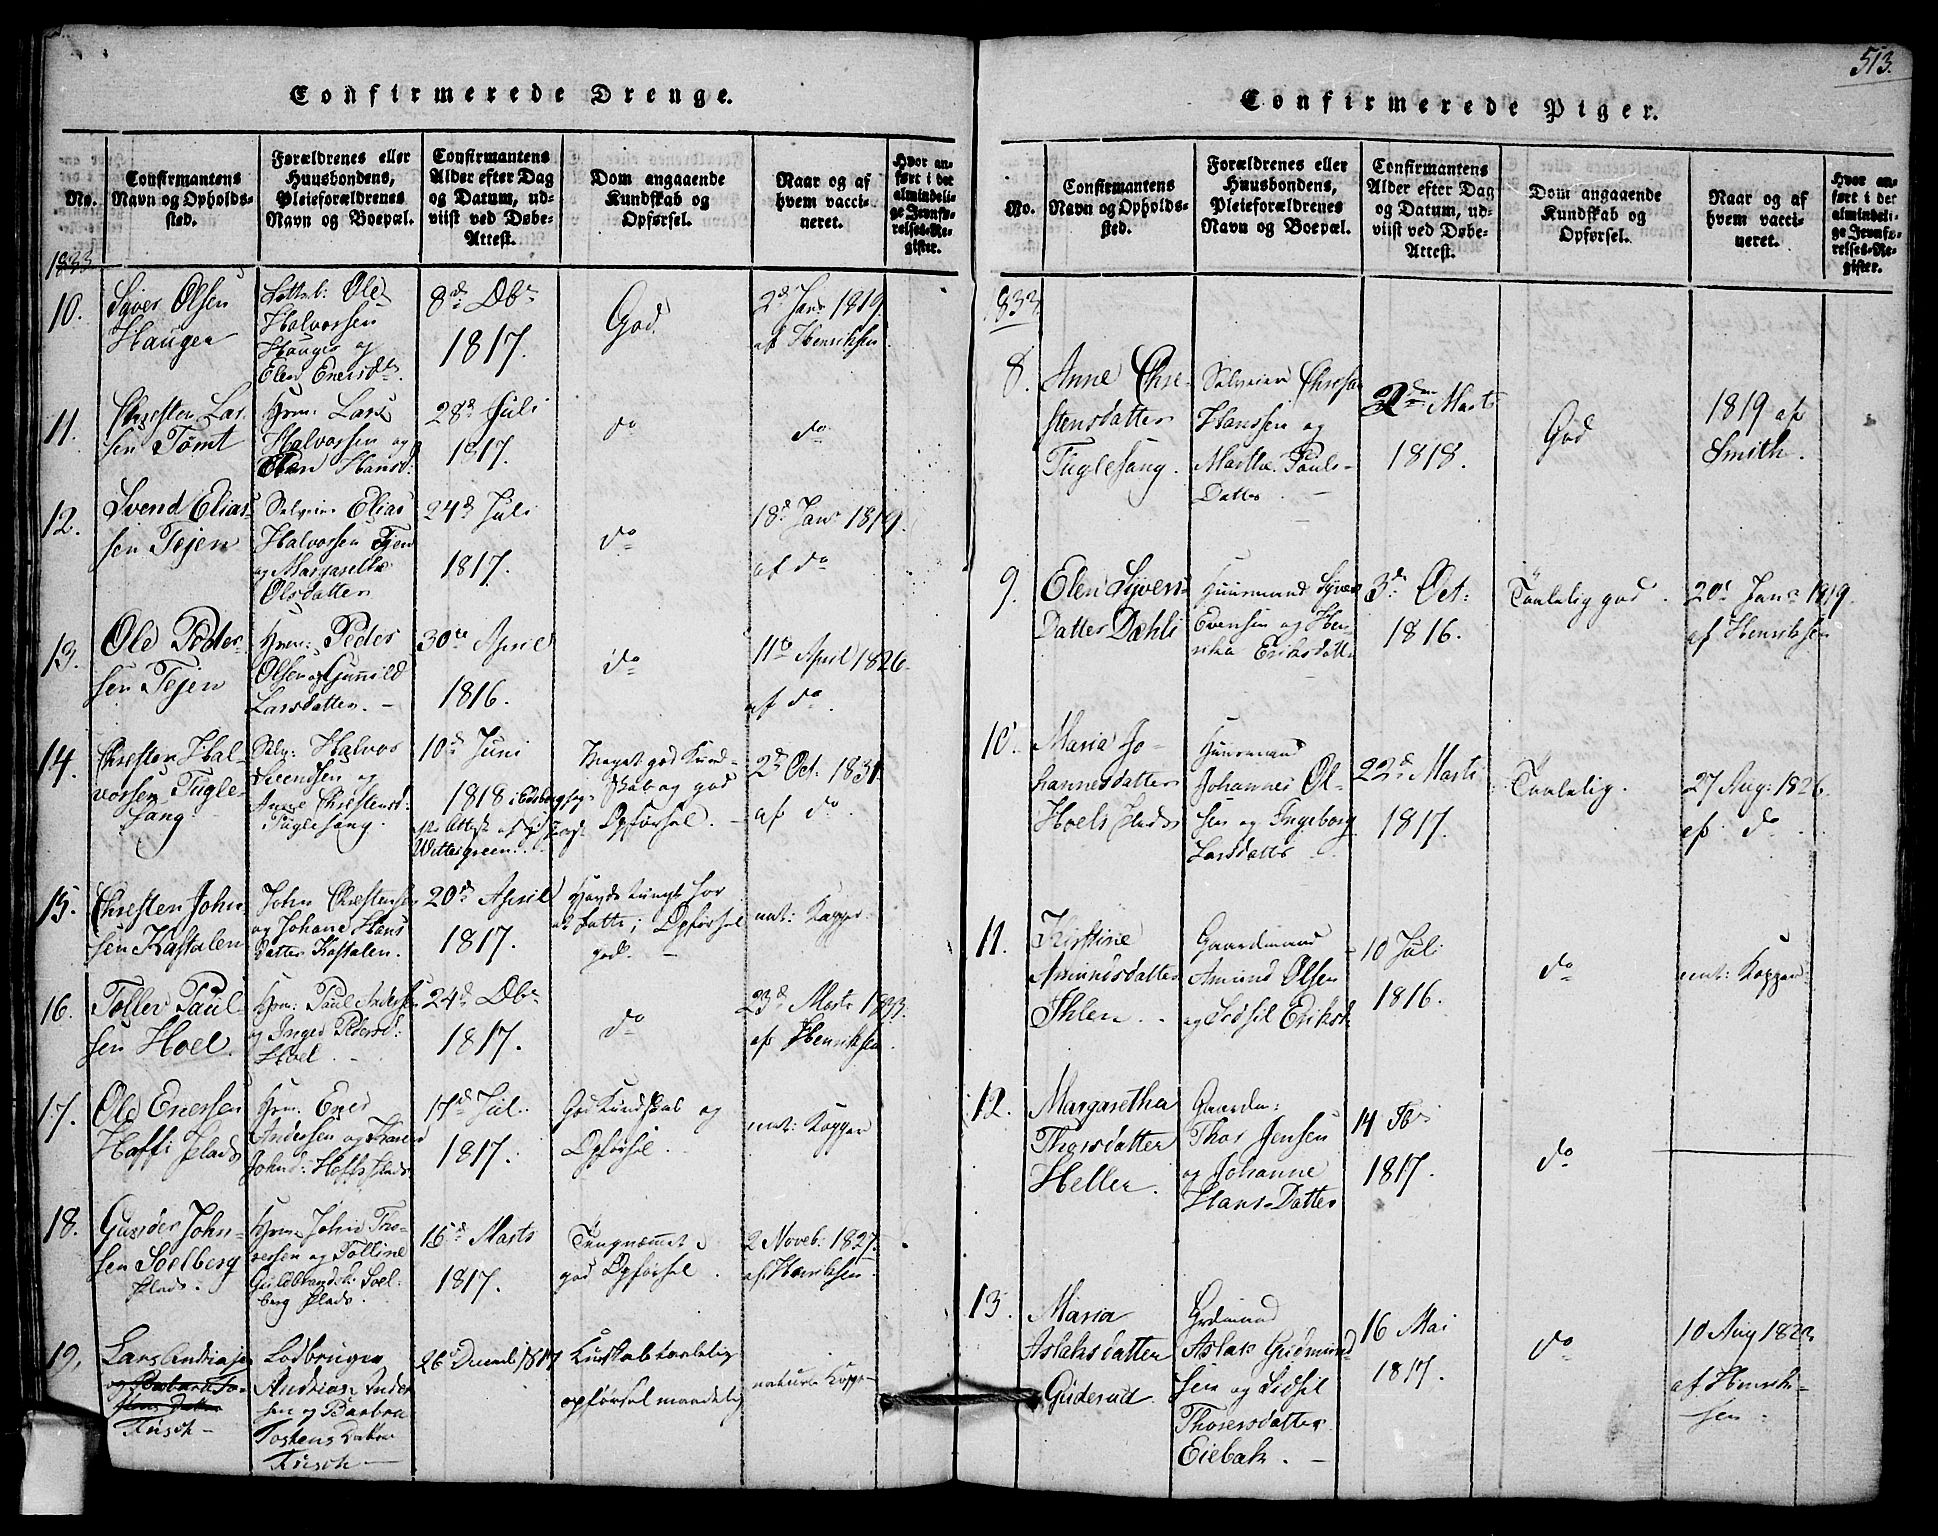 513.
Confirmerede Drenge.
No.
Confirmantens
Navn og Opholds-
sted.
Forældrenes eller
Huusbondens,
Pleieforældrenes
Navn og Boepæl.
Confirmantens
Alder efter Dag
og Datum, ud-
viist ved Døbe-
Attest.
Dom angaaende
Kundskab og
Opførsel.
Naar og af
hvem vacci-
neret.
Hvor an-
ført i det
almindeli-
ge Jevnfø-
relses-Re-
gister.
1833
10.
Syver Olsen
Haugen
Ole
Halvorsen
Hauger og
Elen Enersdt.
8de Dbr
1817.
God
2d Janr 1819
af Henriksen
11.
Chresten Lar
sen Tømt
Hrm: Lars
Halvorsen og
Elen Hansd:
28d Juli
1817.
do
do
12.
Svend Elias
sen Tejen
Selveier Elias
Halvorsen Tejen
og Margarethe
Olsdatter
24d Juli
1817.
do
18d Janr 1819.
af do
13.
Ole Peder-
sen Tejen
Hrm: Peder
Olsen og Gunnild
Larsdatter. -
30te April
1816.
do
11te April 1826.
af do.
14.
Chresten Hal-
vorsen Fugle-
sang.
Selv: Halvor
Svendsen og
Anne Chrestensd:
Fuglesang.
10d Juni
1818 i Eidsberg
Wittergreen.
Meget god Kund-
skab og god
Opførsel. -
2d Oct: 1831
af do.
15.
Chresten John
sen Kastalen
John Chrestensen
og Johane Hans
datter Kastalen.
20d April
1817.
Opførsel
god. -
nat: Kopper
16.
Tollev Paul-
sen Hoel.
Hrm: Paul Andersen
og Inger Pedersd:
Hoel. -
24d Dbr
1817.
do
23d Marts 1833.
af Henriksen
17.
Ole Enersen
Hoffs Plads
Hrm: Ener
Andersen og Karen
Johnd: Hoffs Plads
17d Jul:
1817.
God Kundskab og
Opførsel.
nat: Kopper
18.
Gunder John-
sen Soelberg
Plads.
Hrm: John Tho-
resen og Tolline
Guldbrandsd: Soel-
berg Plads.
15d Marts
1817.
Tungnæmmet
god Opførsel.
2 Noveb: 1827.
af Henriksen.
19.
Lars Andriasen
og Barbara To-
stens Datter
Tusch -
Lodbruger
Andrias Ander
sen og Barbra
Tostens Datter
Tusch -
26d Decemb: 1817
Kundskab taalelig
opførsel maadelig
naturl: Kopper
Confirmerede Piger.
No.
Confirmantens
Navn og Opholds-
sted.
Forældrenes eller
Huusbondens,
Pleieforældrenes
Navn og Boepæl.
Confirmantens
Alder efter Dag
og Datum, ud-
viist ved Døbe-
Attest.
Dom angaaende
Kundskab og
Opførsel.
Naar og af
hvem vacci-
neret.
Hvor an-
ført i det
almindeli-
ge Jevnfø-
relses-Re-
gister.
1833
8.
Anne Chre-
stensdatter
Fuglesang.
Selveier Chresten
Hanssen og
Marthe Pauls-
Datter. -
2den Marts
1818.
God
1819 af
Smith.
9.
Elen Syvers
Datter Dæhli
Huusmand Syver
Evensen og Hen-
rika Eriksdatter
3d Oct:
1816.
Taalelig god.
20d Janr 1819.
af Henriksen
10.
Maria Jo-
hannesdatter
Hoels Plads
Huusmand
Johannes Ol-
sen og Ingeborg
Larsdatter
22d Marts
1817.
Taalelig.
27 Aug: 1826.
af do.
11.
Kirstine
Amundsdatter
Ihlen.
Gaardmand
Amund Olsen
og Sidsil Eriksd:
10 Juli
1816.
do
nat: Kopper
12.
Margaretha
Thorsdatter
Heller.
Gaardm:
Thor Jensen
og Johanne
Hans-Datter
14 Fbr
1817.
do
13.
Maria
Aslaksdatter
Guderud
Grdmand
Aslak Gudmund-
sen og Sidsil
Thorersdatter
Eiebak. -
16 Mai
1817.
do
10 Aug 1823
af Henrik-
sen